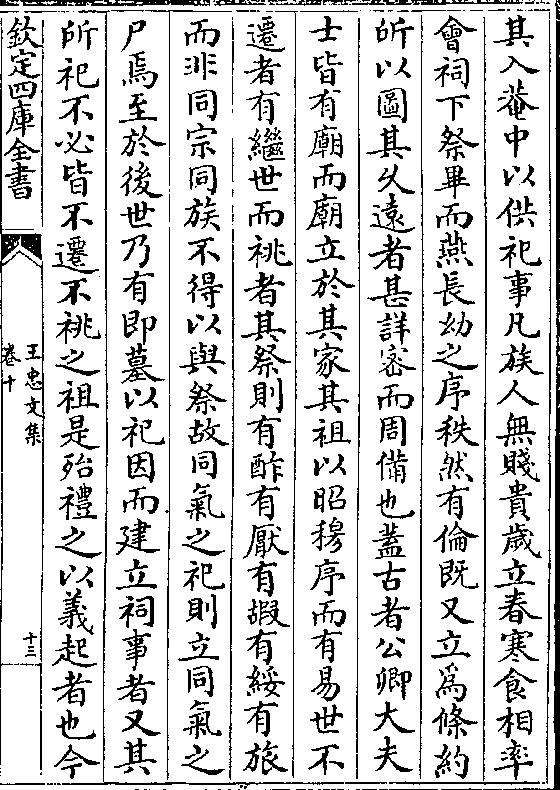 其入菴中以供祀事凡族人無賤貴歲立春寒食相率
會祠下祭畢而燕長幼之序秩然有倫既又立為條約
所以圖其久遠者甚詳宻而周備也蓋古者公卿大夫
士皆有廟而廟立於其家其祖以昭穆序而有易世不
遷者有繼世而祧者其祭則有酢有厭有嘏有綏有旅
而非同宗同族不得以與祭故同氣之祀則立同氣之
尸焉至於後世乃有即墓以祀因而建立祠事者又其
所祀不必皆不遷不祧之祖是殆禮之以義起者也今
欽定四庫全書
王忠文集
卷十
十三